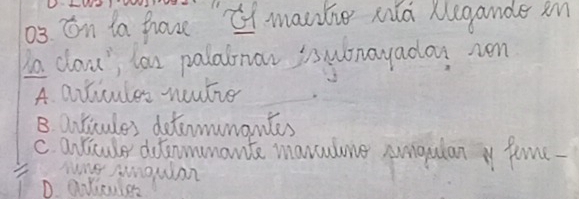 03. En la frase "El maestro está llegando en
la clase", las palabras subrayadas, son
A. artículos neutro
B. artículos determinantes
C. artículo determinante masculino singular y feme-
nino singular
D. artículos